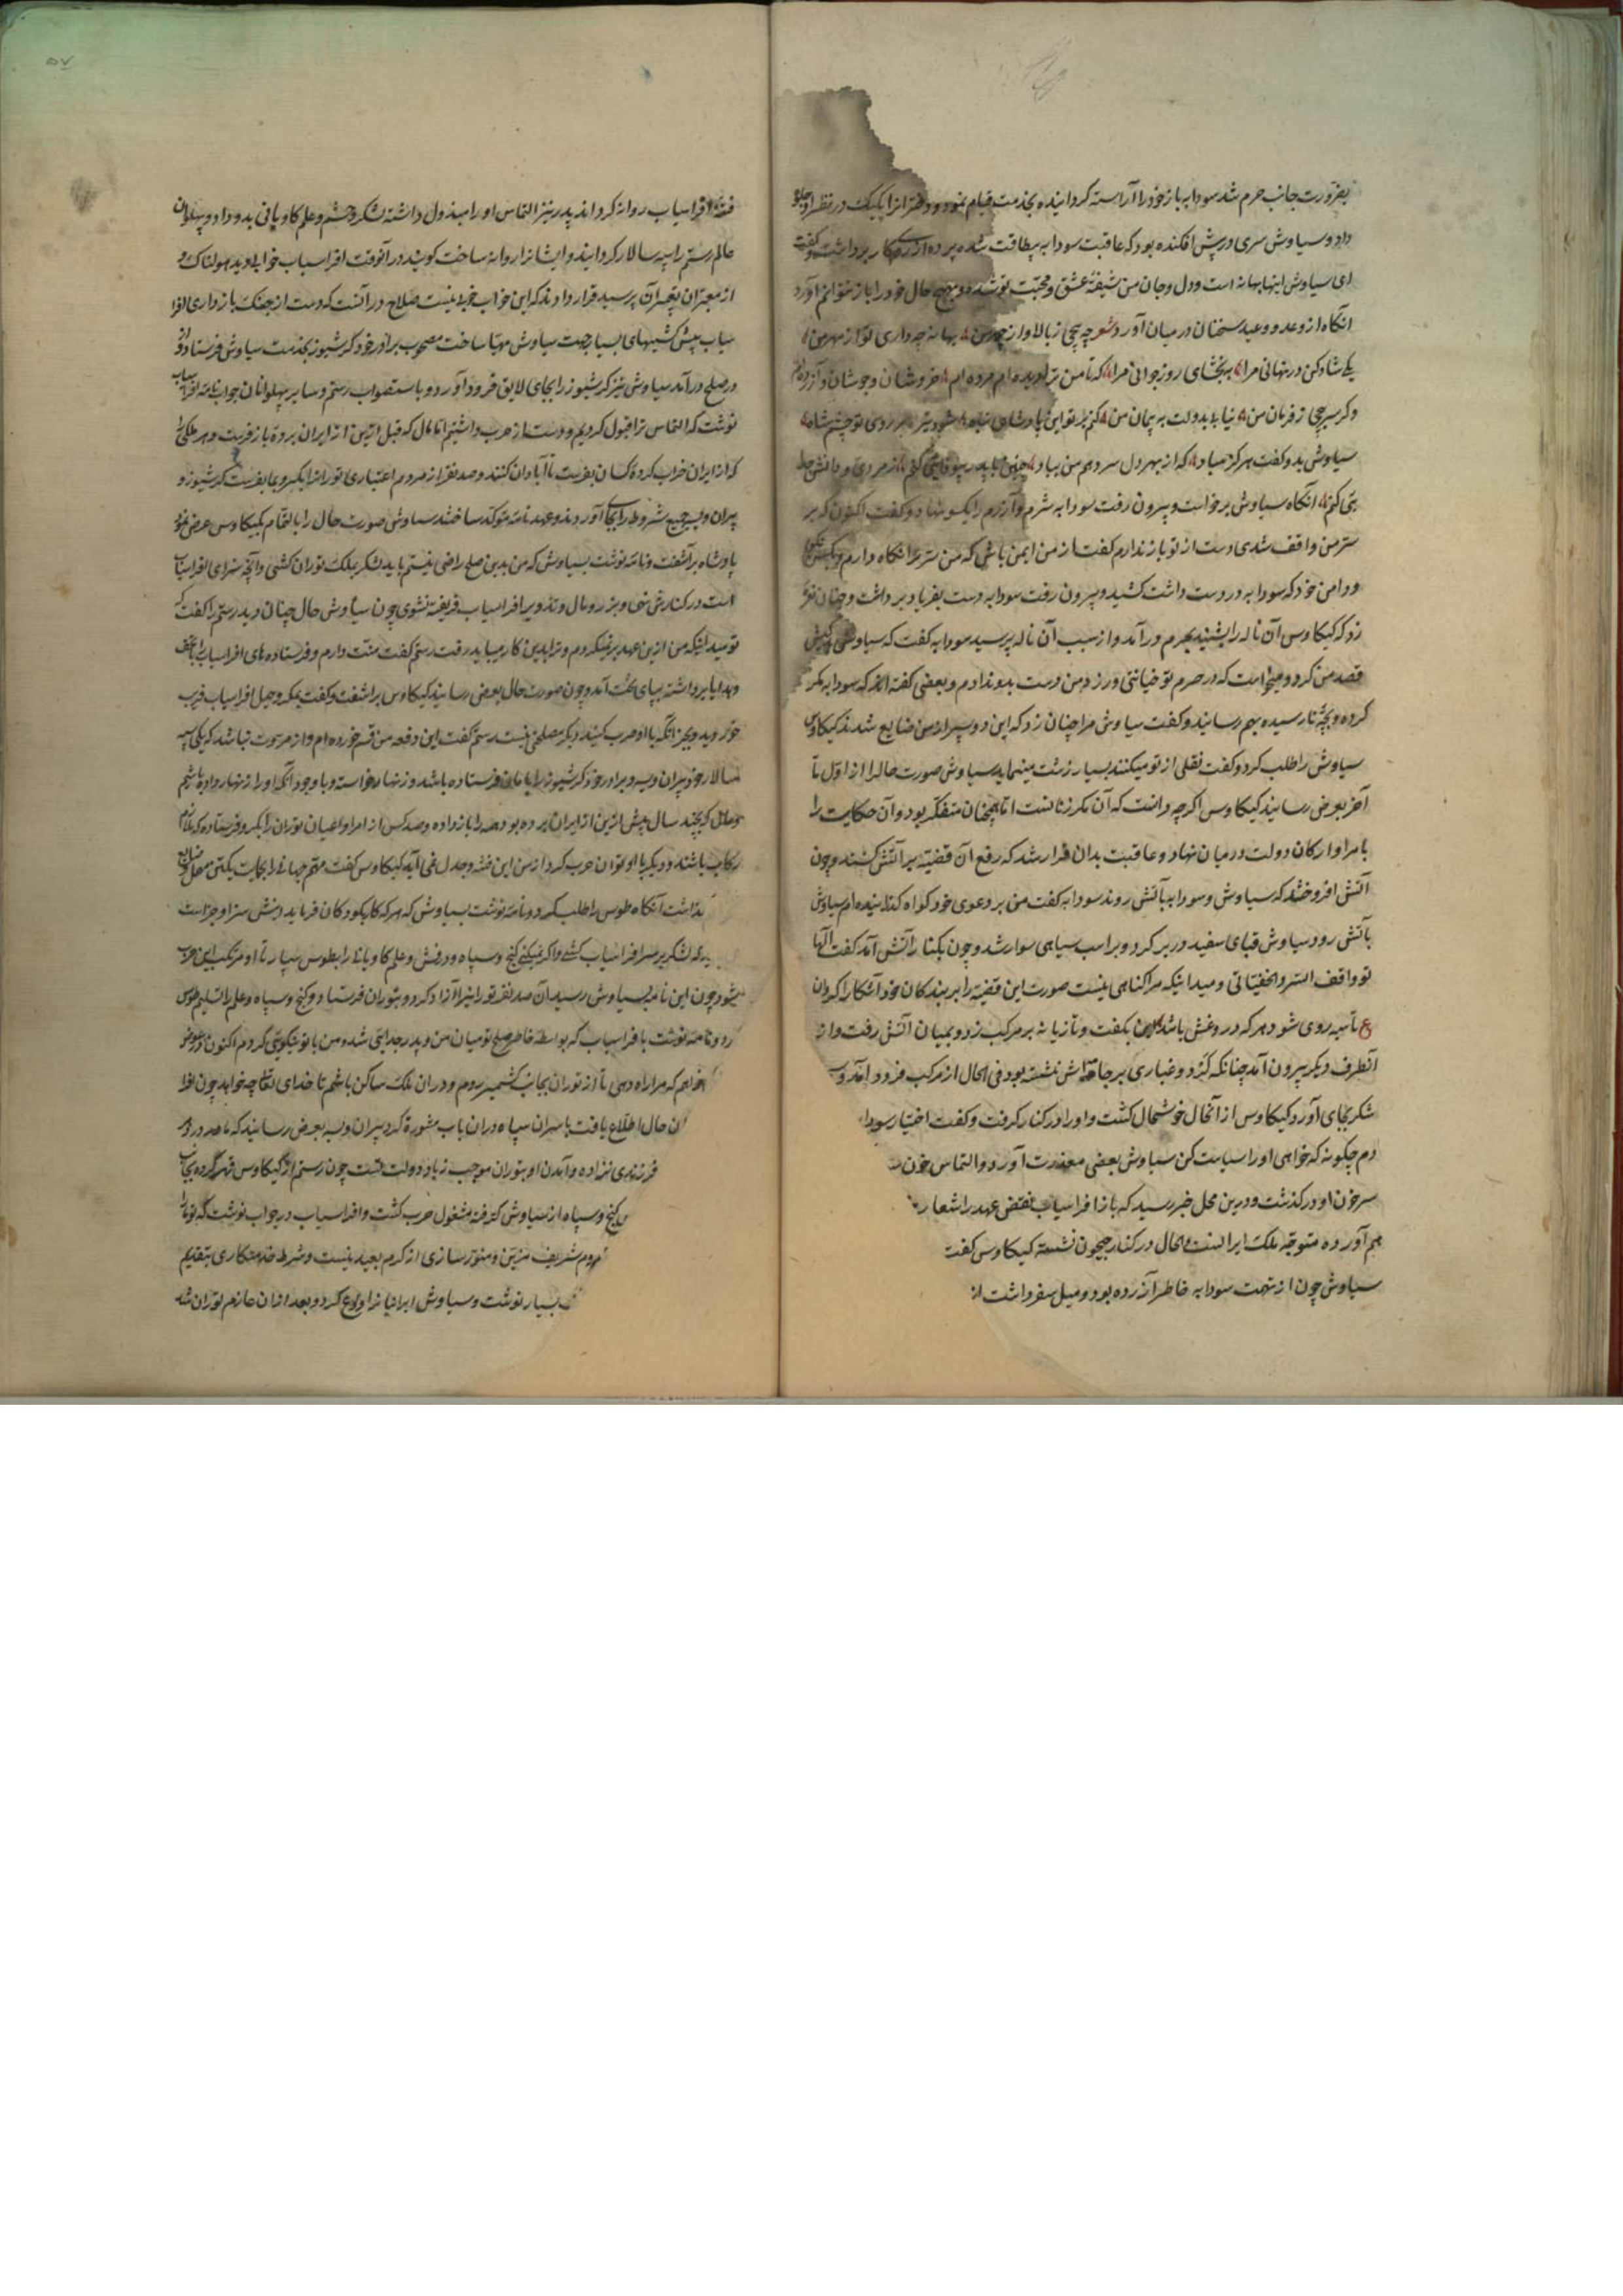 بضرورت جانب حرم شد سودابه باز خود را آراسته کردانیده بخدمت قیام نمود و دختر انرا یکیک در نظر او جلوه
داد و سیاوش سری در پیش افکنده بود که عاقبت سودابه بیطاقت شده پرده از روی کار برداشت و کفت
ای سیاوش اینها بهانه است و دل و جان من شیفتهٔ عشق و محبّت تو شده و بهیچ حال خود را باز نتوانم آورد
انکاه از وعد و وعید سخنان در میان آورد شعر چه پیچی ز بالا و از چهر من بهانه چه داری تو از مهر من
یکی شاد کن در نهانی مرا ببخشای روز جوانی مرا که تا من ترا دیده ام مرده ام خروشان و جوشان و آزرده ام
و کر سر پیچی ز فرمان من نیاید بدولت به پیمان من کنم بر تو این پادشاهی تباه شود تیره بر روی تو چشم شاه
سیاوش بدو کفت هرکز مباد که از بهر دل سر دهم من بباد چنین با پدر بیوفائی کنم ز مردی و دانش جدا
یی کنم انکاه سیاوش برخاست و بیرون رفت سودابه شرم و آزرم را یکسو نهاد و کفت اکنون که بر
سرّ من واقف شدی دست از تو باز ندارم کفت از من ایمن باش که من سرّ ترا نکاه دارم
و دامن خود که سودابه در دست داشت کشید و بیرون رفت سودابه دست بفریاد برداشت و چنان نعره
زد که کیکاوس آن ناله را بشنید بحرم در آمد و از سبب آن ناله پرسید سودابه کفت که سیاوش
قصد من کرد و میخواست که در حرم تو خیانتی ورزد من دست بدو ندادم و بعضی کفته اند که سودابه مکر
کرده و بچّهٔ نارسیده بهم رسانید و کفت سیاوش مرا چنان زد که این دو پسر از من ضایع شدند کیکاوس
سیاوش را طلب کرد و کفت نقلی از تو میکنند بسیار زشت مینماید سیاوش صورت حال را از اوّل تا
آخر بعرض رسانید کیکاوس اکرچه دانست که آن مکر زنانست امّا همچنان متفکّر بود و آن حکایت را
با مرا و ارکان دولت در میان نهاد و عاقبت بدان قرار شد که رفع آن قضیّه بر آتش کنند و چون
آتش افروختند که سیاوش و سودابه بآتش روند سودابه کفت من بر دعوی خود کواه کذرانیده ام سیاوش
بآتش رود سیاوش قبای سفید در بر کرد و بر اسب سیاهی سوار شد و چون بکنار آتش آمد کفت آلها
تو واقف السّر و الخفیّاتی و میدانیکه مرا کناهی نیست صورت این قضیّه را بر بندکان خود آشکارا کردان
ع تا سیه روی شود هر که دروغش باشد این بکفت و تازیانه بر مرکب زد و بمیان آتش رفت و از
آنطرف دیکر بیرون آمد چنانکه کرد و غباری بر جامه اش ننشسته بود فی الحال از مرکب فرود آمد و
شکر بجای آورد کیکاوس از آنحال خوشحال کشت و او را در کنار کرفت و کفت اختیار سودا
دم چکونه که خواهی او را سیاست کن سیاوش بعضی معذرت آورد و التماس خون
سر خون او در کذشت و درین محل خبر رسید که باز افراسیاب نقض عهد را شعار
بهم آورده متوجّه ملک ایرانست و الحال در کنار جیحون نشسته کیکاوس کفت
سیاوش چون از تهمت سودابه خاطر آزرده بود و میل سفر داشت
۵۷
فتنهٔ افراسیاب روانه کردانند پدر نیز التماس او را مبذول داشته لشکر و حشم و علم کاویانی بدو داد و پهلوان
عالم رستم را سپه سالار کردانید و ایشانرا روانه ساخت کویند در آنوقت افراسیاب خوابی دید هولناک و
از معبّران تعبیر آن پرسید قرار دادند که این خواب خوب نیست صلاح در آنست که دست از جنک باز داری افرا
سیاب پیش کشیهای بسیار جهت سیاوش مهیّا ساخت مصحوب برادر خود کرشیوز بخدمت سیاوش فرستاد و از
در صلح در آمد سیاوش نیز کرشیوز را بجای لایق فرود آورد و باستصواب رستم و سایر پهلوانان جواب نامه افراسیاب
نوشت که التماس ترا قبول کردیم و دست از حرب داشتیم امّا مال که قبل ازین از ایران برده باز فرست و هر ملکی را
که از ایران خراب کرده کسان بفرست تا آبادان کنند و صد نفر از مردم اعتباری توران را بکرو بما بفرست کرشیوز و
پیران ویسه جمیع شروط را بجای آوردند و عهد نامه مؤکّد ساختند سیاوش صورت حال را بالتّمام بکیکاوس عرض نمود
پادشاه بر آشفت و نامه نوشت بسیاوش که من بدین صلح راضی نیستم باید لشکر بملک توران کشی و آنچه سزای افراسیاب
است در کنارش نهی و بزر و مال و تزویر افراسیاب فریفته نشوی چون سیاوش حال چنان دید رستم را کفت که
تو میدانیکه من ازین عهد بر نمیکردم و ترا بدین کار میباید رفت رستم کفت منّت دارم و فرستاده های افراسیاب را با تحف
و هدایا برداشته بپای تخت آمد و چون صورت حال بعرض رسانید کیکاوس بر اشفت و کفت بمکر و حیل افراسیاب فریب
خوردید و بجز آنکه با او حرب کنید دیکر مصلحتی نیست رستم کفت این دفعه من قسم خورده ام و از مروّت نباشد که یکی سپه
سالار خود پیران ویسه و برادر خود کرشیوز را با مان فرستاده باشد و زنهار خواسته و با وجود آنکه او را زنهار داده باشیم
و مال که بچند سال پیش ازین از ایران برده بود همه را باز داده و صد کس از امرا و اعیان توران را بکرو فرستاده که ملازم
رکاب باشند و دیکر با او نتوان حرب کرد و از من این فتنه و جدل نمی آید کیکاوس کفت مهمّ جهانی را بجایت یکتن مهمل
نذاشت آنکاه طوس را طلب کرد و نامه نوشت بسیاوش که هر که کار بکودکان فرماید اینش سزا و جزاست
که لشکر بر سر افراسیاب کشی و اکر نمیکنی کنج و سپاه و درفش و علم کاویانرا بطوس سپار تا او مرتکب این حرب
میشود چون این نامه بسیاوش رسید آن صد نفر تورانیرا آزاد کرد و بتوران فرستاد و کنج و سپاه و علم را تسلیم طوس
و نامه نوشت بافراسیاب که بواسطهٔ خاطر صلح تو میان من و پدر جدایی شده و من با تو نیکویی کردم اکنون در عوض
خواهم که مرا راه دهی تا از توران بجانب کشمیر روم و در ان ملک ساکن باشم تا خدای تعالی چه خواهد چون افرا
ان حال اطّلاع یافت با سران سپاه در ان باب مشورة کرد پیران ویسه بعرض رسانید که
فرزندی نزاده و آمدن او بتوران موجب زیاد دولت تست چون رستم از کیکاوس قهر کرده بجانب
کنج و سپاه از سیاوش کرفته مشغول حرب کشت و افراسیاب در جواب نوشت که تو ما را
دوم شریف مزیّن و منوّر سازی از کرم بعید نیست و شرط خدمتکاری بتقدیم
بسیار نوشت و سیاوش ایرانیانرا وداع کرد و بعد از ان عازم توران شد